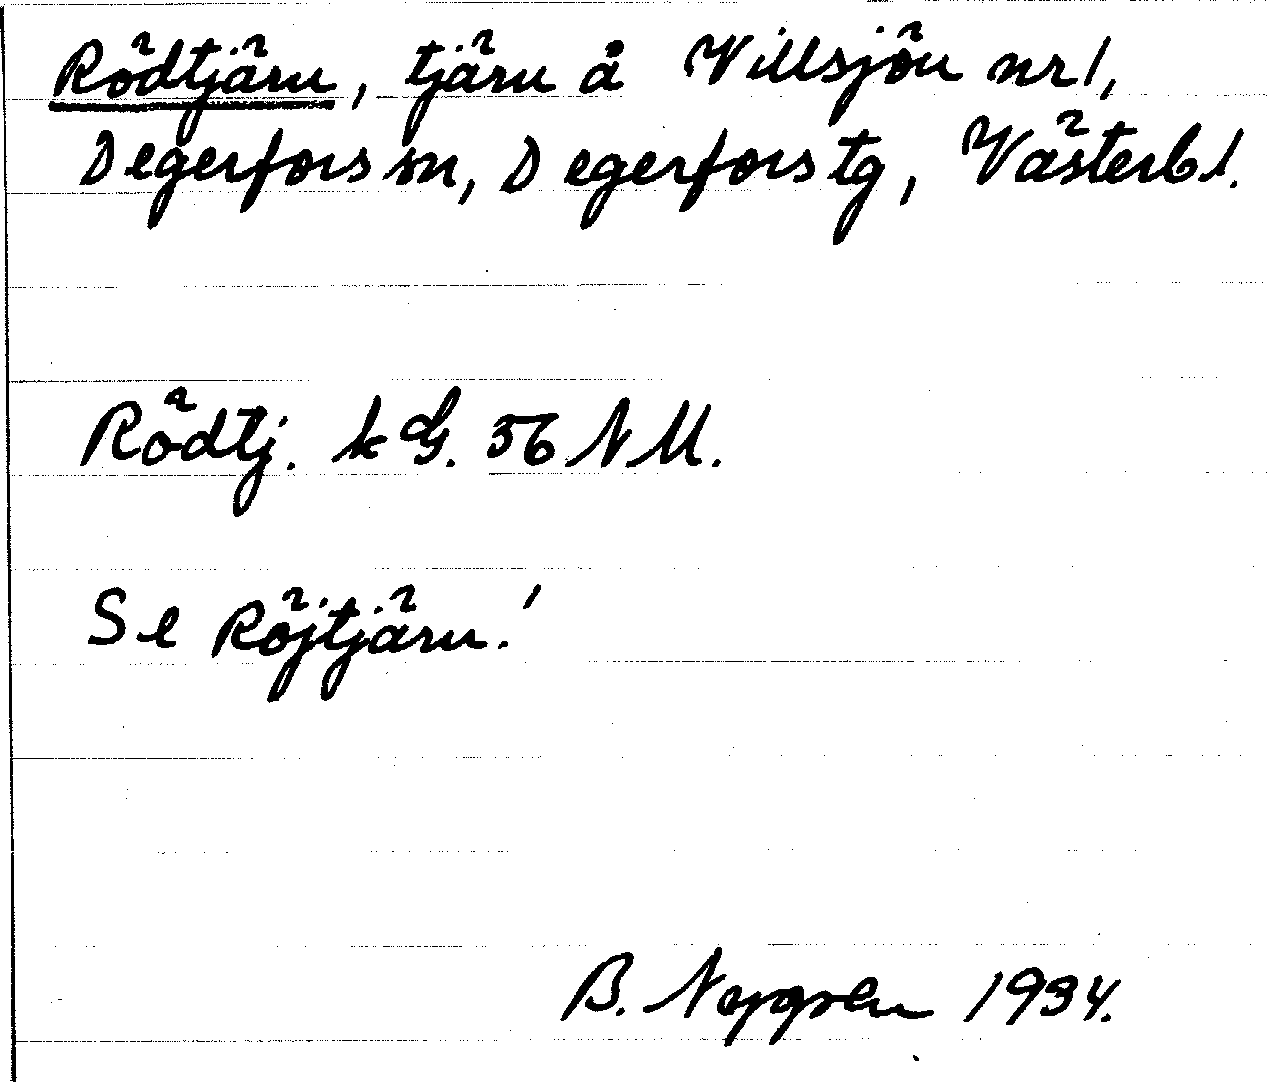 Rödtjärn, tjärn å Villsjön nr 1,
Degerfors sn, Degerfors tg, Västerb l.
Rödtj. k G. 56 NM.
Se Röjtjärn!
B. Nygren 1934.